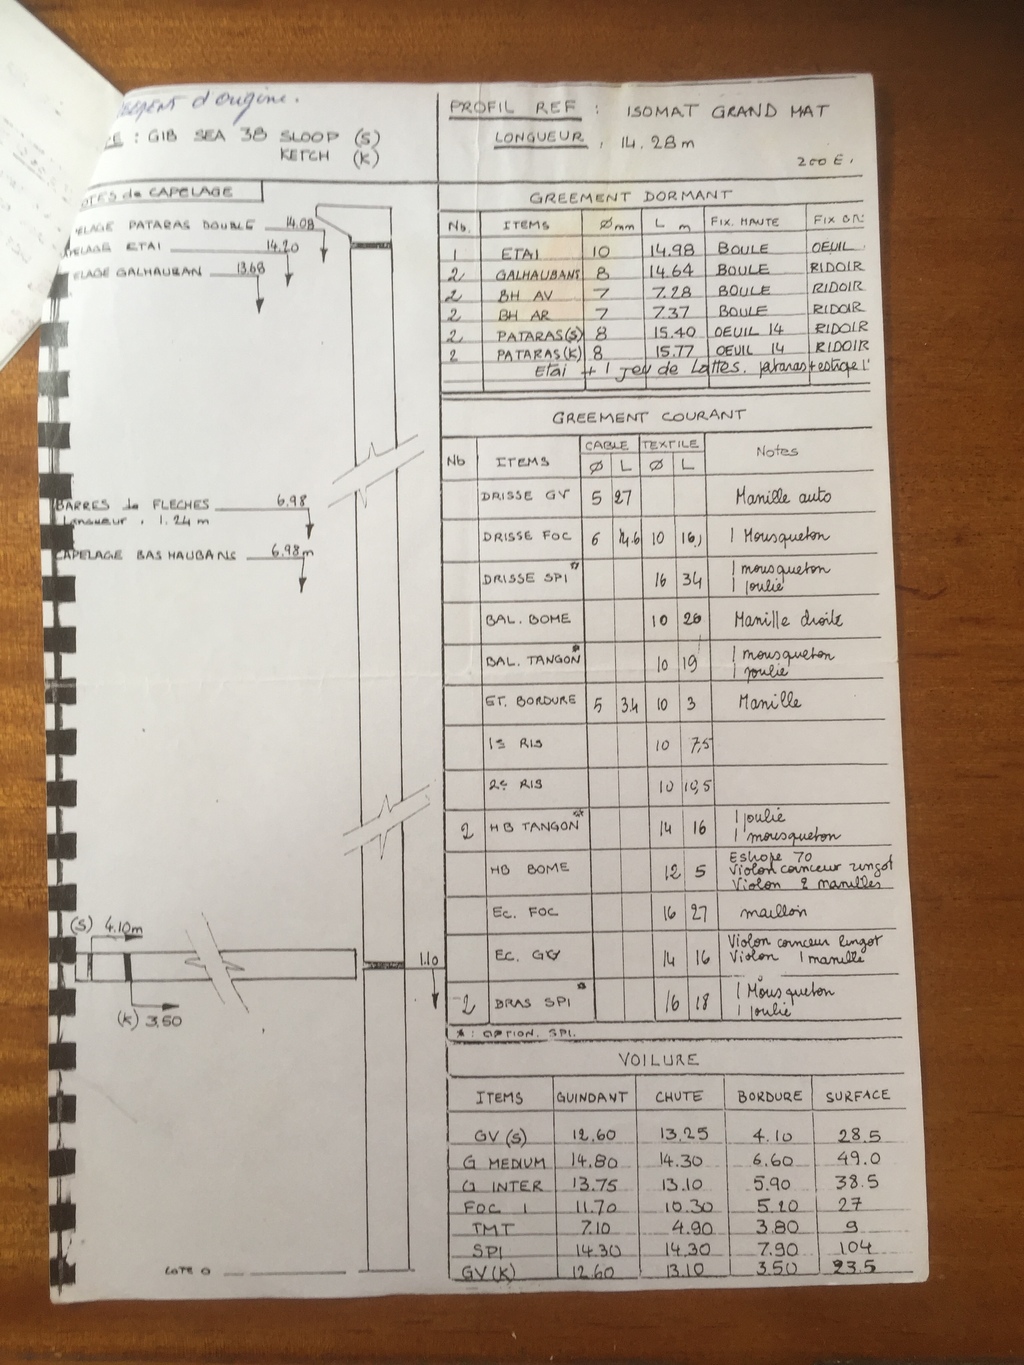 d'origine.
: GIB SEA 38 SLOOP (S)
KETCH (K)
PROFIL REF : ISOMAT GRAND MAT
LONGUEUR, 14.28m
200 E.
de CAPELAGE
PATARAS DOUBLE 14.08
ETAI 14.20
GALHAUBAN 13.68
BARRES de FLECHES 6,98
Longueur, 1.24 m
CAPELAGE BAS HAUBANS 6,98m
(S) 4.10m
(K) 3,50
1.10
COTE 0
GREEMENT DORMANT
Nb. ITEMS Ø mm L m FIX. HAUTE FIX
1 ETAI 10 14.98 BOULE OEUIL
2 GALHAUBANS 8 14.64 BOULE RIDOIR
2 BH AV 7 7.28 BOULE RIDOIR
2 BH AR 7 7.37 BOULE RIDOIR
2 PATARAS(S) 8 15.40 OEUIL 14 RIDOIR
2 PATARAS(K) 8 15.77 OEUIL 14 RIDOIR
Etai + 1 jeu de Lattes. pataras +
GREEMENT COURANT
CABLE TEXTILE
Nb ITEMS Ø L Ø L Notes
DRISSE GV 5 27 Manille auto
DRISSE FOC 6 14.6 10 16, 1 Mousqueton
DRISSE SPI* 16 34 1 mousqueton
1 joulie
BAL. BOME 10 20 Manille droite
BAL. TANGON* 10 19 1 mousqueton
1 joulie
ET. BORDURE 5 3.4 10 3 Manille
1e RIS 10 7,5
2e RIS 10 10,5
2 HB TANGON* 14 16 1 joulie
1 mousqueton
HB BOME 12 5 Estrope 70
Violon coinceur lingot
Violon 2 manilles
Ec. FOC 16 27 maillon
Ec. GV 14 16 Violon coinceur lingot
Violon 1 manille
2 BRAS SPI* 16 18 1 Mousqueton
1 joulie
* : OPTION. SPI.
VOILURE
ITEMS GUINDANT CHUTE BORDURE SURFACE
GV (S) 12,60 13,25 4.10 28.5
G MEDIUM 14.80 14.30 6.60 49.0
G INTER 13.75 13.10 5.90 38.5
FOC 1 11.70 10.30 5.20 27
TMT 7.10 4.90 3.80 9
SPI 14.30 14.30 7.90 104
GV (K) 12.60 13.10 3.50 23.5